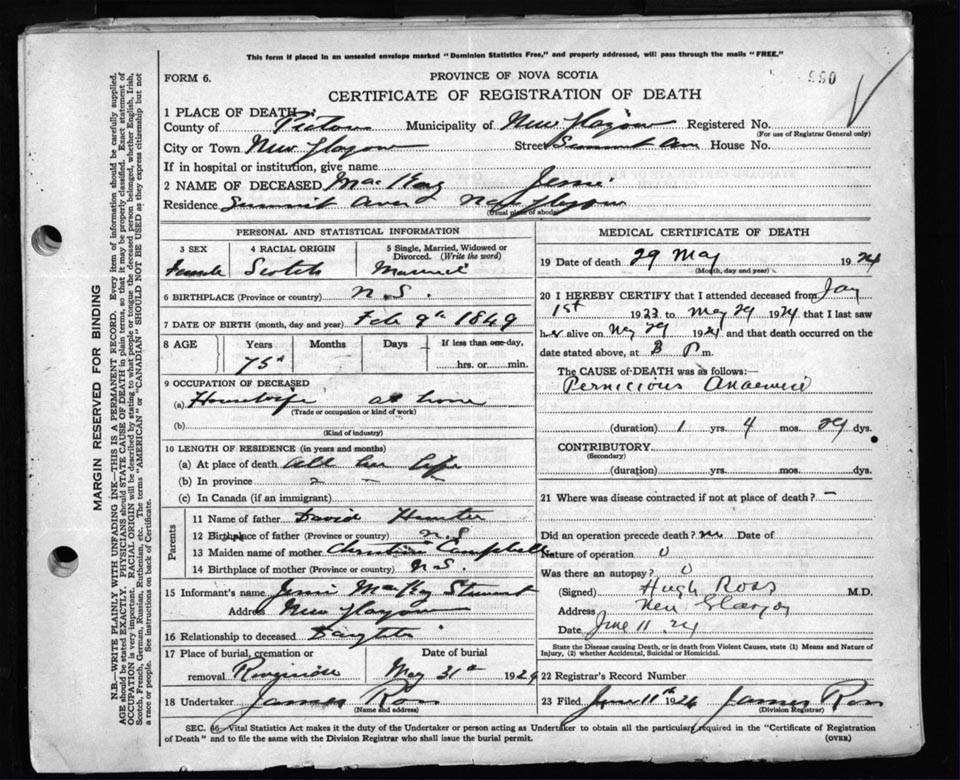 This form if placed in an unsealed envelope marked "Dominion Statistics Free," and properly addressed, will pass through the mails "FREE."
FORM 6.
PROVINCE OF NOVA SCOTIA
990
CERTIFICATE OF REGISTRATION OF DEATH
1 PLACE OF DEATH
County of Pictou Municipality of New Glasgow Registered No.
(For use of Registrar General only)
City or Town New Glasgow Street Summit Ave House No.
If in hospital or institution, give name
2 NAME OF DECEASED MacKay Jessie
Residence Summit Ave New Glasgow
(Usual place of abode)
PERSONAL AND STATISTICAL INFORMATION
3 SEX 4 RACIAL ORIGIN 5 Single, Married, Widowed or Divorced. (Write the word)
Female Scotch Married
6 BIRTHPLACE (Province or country) N.S.
7 DATE OF BIRTH (month, day and year) Feb 9th 1849
8 AGE Years Months Days If less than one day,
75 hrs. or min.
9 OCCUPATION OF DECEASED
(a) Housewife at home
(Trade or occupation or kind of work)
(b)
(Kind of industry)
10 LENGTH OF RESIDENCE (in years and months)
(a) At place of death all her life
(b) In province
(c) In Canada (if an immigrant)
Parents
11 Name of father David Hunter
12 Birthplace of father (Province or country) N.S
13 Maiden name of mother Christina Campbell
14 Birthplace of mother (Province or country) N.S.
15 Informant's name Jessie MacKay Stewart
Address New Glasgow
16 Relationship to deceased Daughter
17 Place of burial, cremation or Date of burial
removal Riverside May 31st 1924
18 Undertaker James Ross
(Name and address)
MEDICAL CERTIFICATE OF DEATH
19 Date of death 29 May 1924
(Month, day and year)
20 I HEREBY CERTIFY that I attended deceased from Jany
1st 1923 to May 29 1924 that I last saw
her alive on May 29 1924 and that death occurred on
date stated above, at 8 P m.
The CAUSE of DEATH was as follows:—
Pernicious Anaemia
(duration) 1 yrs. 4 mos. 29 dys.
CONTRIBUTORY
(Secondary)
(duration) yrs. mos. dys.
21 Where was disease contracted if not at place of death? –
Did an operation precede death? no Date of
Nature of operation 0
Was there an autopsy? 0
(Signed) Hugh Ross M.D.
Address New Glasgow
Date June 11 24
State the Disease causing Death, or in death from Violent Causes, state (1) Means and Nature of Injury, (2) whether Accidental, Suicidal or Homicidal.
22 Registrar's Record Number
23 Filed June 11th 1924 James Ross
(Division Registrar)
SEC. 46—Vital Statistics Act makes it the duty of the Undertaker or person acting as Undertaker to obtain all the particulars required in the "Certificate of Registration
of Death" and to file the same with the Division Registrar who shall issue the burial permit.
(OVER)
MARGIN RESERVED FOR BINDING
N.B.—WRITE PLAINLY WITH UNFADING INK—THIS IS A PERMANENT RECORD. Every item of information should be carefully supplied.
AGE should be stated EXACTLY. PHYSICIANS should STATE CAUSE OF DEATH in plain terms, so that it may be properly classified. Exact statement of
OCCUPATION is very important. RACIAL ORIGIN will be described by stating to what people or tongue the deceased person belonged, whether English, Irish,
Scotch, French, German, Russian, Ruthenian, etc. The terms "AMERICAN" or "CANADIAN" SHOULD NOT BE USED as they express citizenship but not
a race or people. See instructions on back of Certificate.